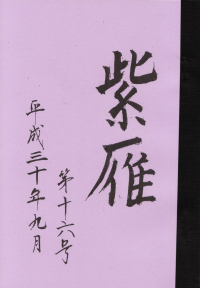 紫雁
第十六号
平成三十年九月